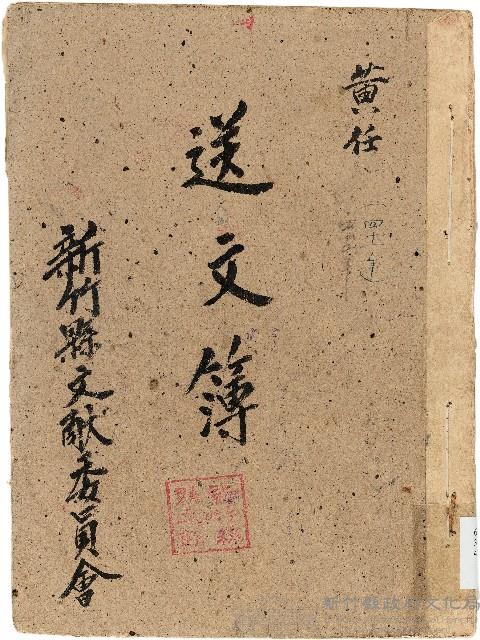 黃任
四十年
送文簿
新竹縣文献委員會
新竹縣政府文化局